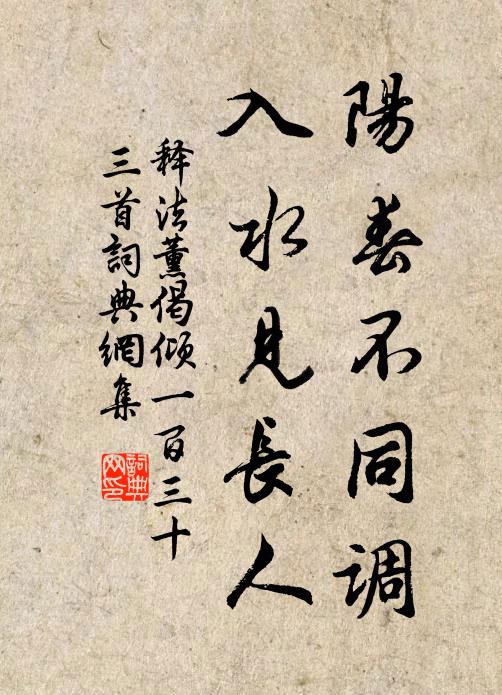 陽春不同調
入水見長人
释法薰偈倾一百三十
三首詞典網集
詞典網印